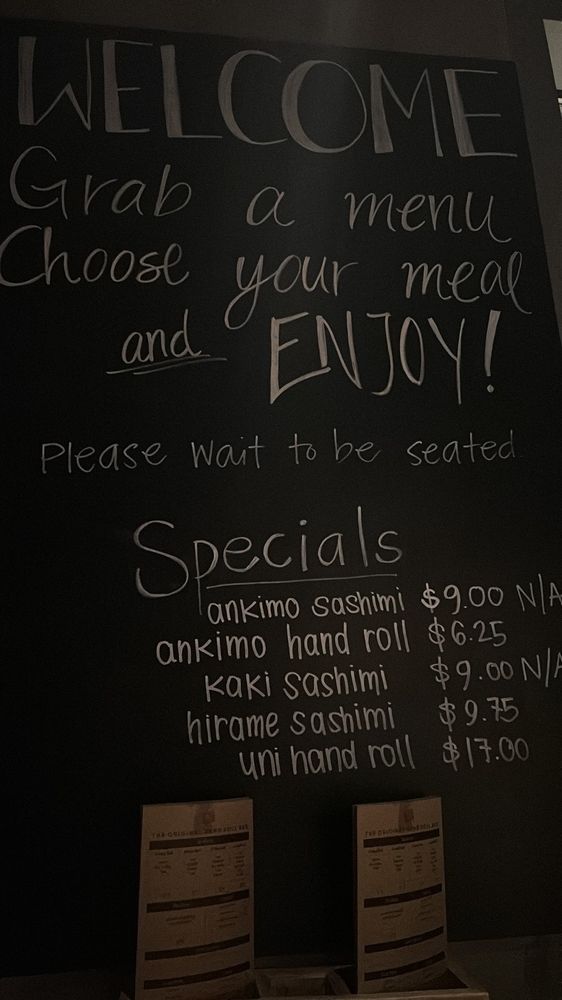 WELCOME
Grab a menu
Choose your meal
and ENJOY!
Please wait to be seated
Specials
ankimo sashimi $9.00 N/A
ankimo hand roll $6.25
kaki sashimi $9.00 N/A
hirame sashimi $9.75
uni hand roll $17.00